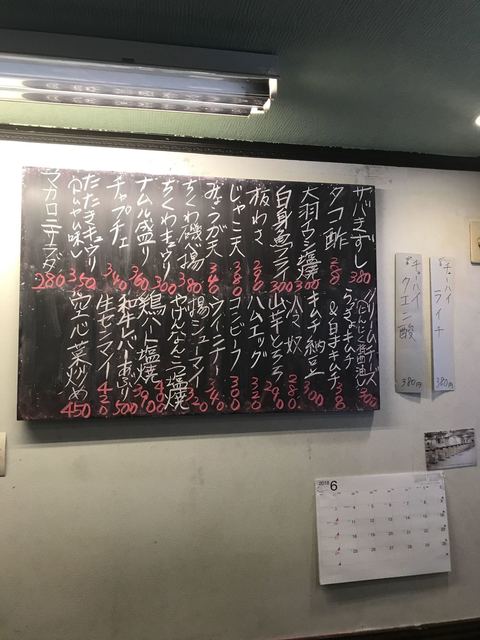 サバきずし 380
タコ酢
大羽イワシ塩焼 300
白身魚フライ 300
板わさ
じゃこ天
みょうが天 340
ちくわ磯部揚 380
ちくわキュウリ 300
ナムル盛り
チャプチェ
たたきキュウリ 350
マカロニサラダ 280
クリームチーズ 300
らっきょキムチ
&白キムチ
キムチ納豆 300
冷奴 280
山芋とろろ 290
ハムエッグ 320
コンビーフ 300
ウィンナー 340
揚シューマイ 320
やげんなんこつ塩焼
鶏ハート塩焼 390
和牛レバーあぶり 500
生センマイ 420
空心菜炒め 450
チューハイ
ライチ
380円
チューハイ
クエン酸
380円
2018 6